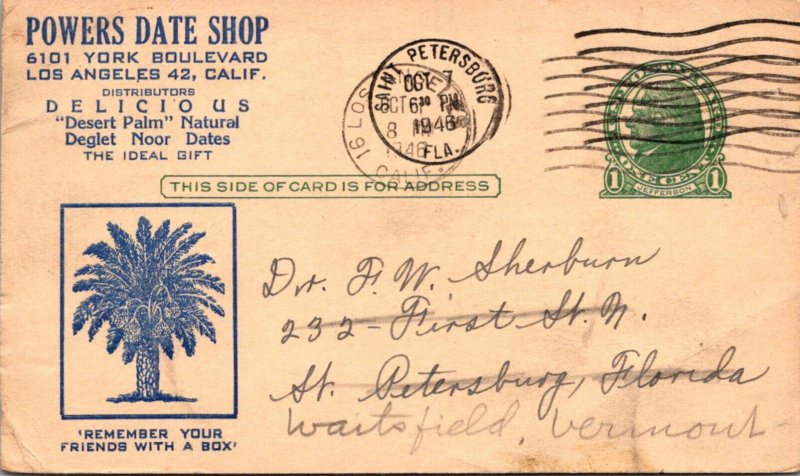 POWERS DATE SHOP
6101 YORK BOULEVARD
LOS ANGELES 42, CALIF.
DISTRIBUTORS
DELICIOUS
"Desert Palm" Natural
Deglet Noor Dates
THE IDEAL GIFT
SAINT PETERSBURG
OCT 7
6 30 PM
1946
FLA.
LOS ANGELES
16
OCT
8
1946
CALIF.
UNITED STATES
ONE CENT
1 JEFFERSON 1
THIS SIDE OF CARD IS FOR ADDRESS
Dr. F. W. Sherburn
232 - First St. N.
St. Petersburg, Florida
Waitsfield, Vermont
'REMEMBER YOUR
FRIENDS WITH A BOX'